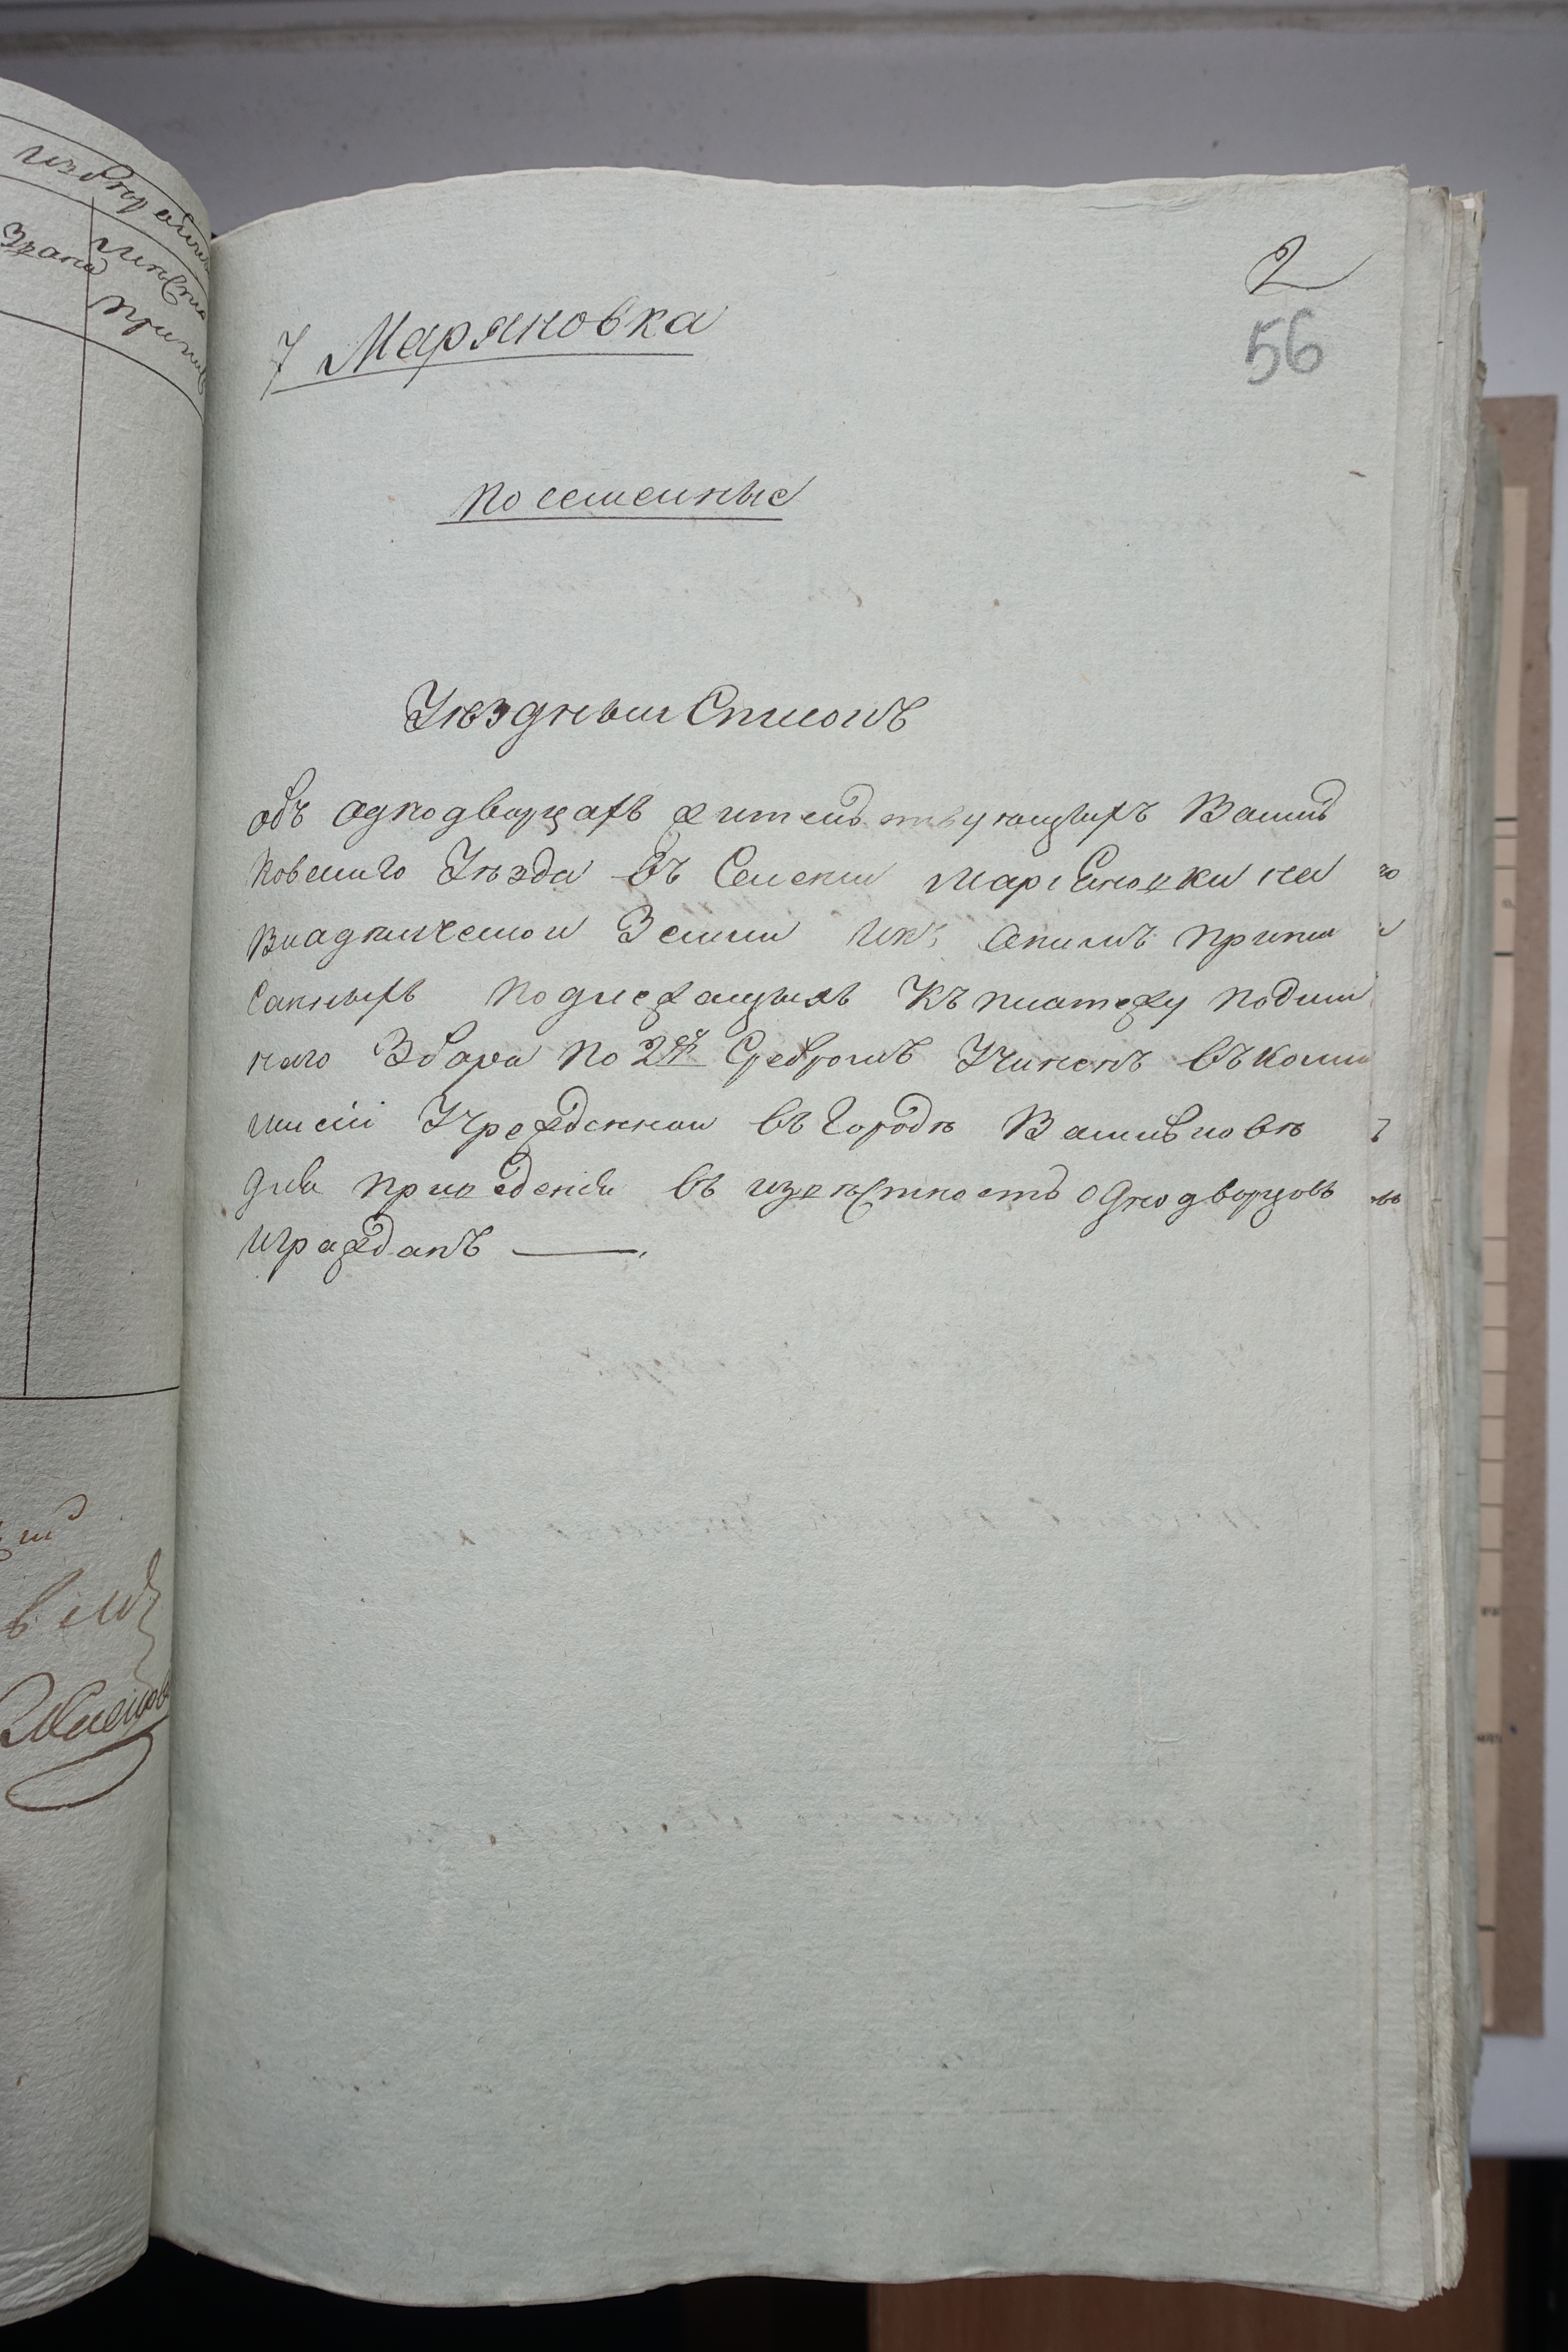 2
56
7 Маряновка
по семейные
Уѣздный Списокъ
объ однодворцахъ жительствующихъ Василь
ковского Уѣзда въ Селении Маріановки на
Владѣлческой Земли и къ онимъ припи
санныхъ подлежащихъ къ платежу подым
наго Збора по 2 ру Сребромъ Учиненъ въ Коми
мисіи Учрежденной въ Городѣ Васильковѣ
для приведенія въ извѣстность однодворцовъ
и гражданъ